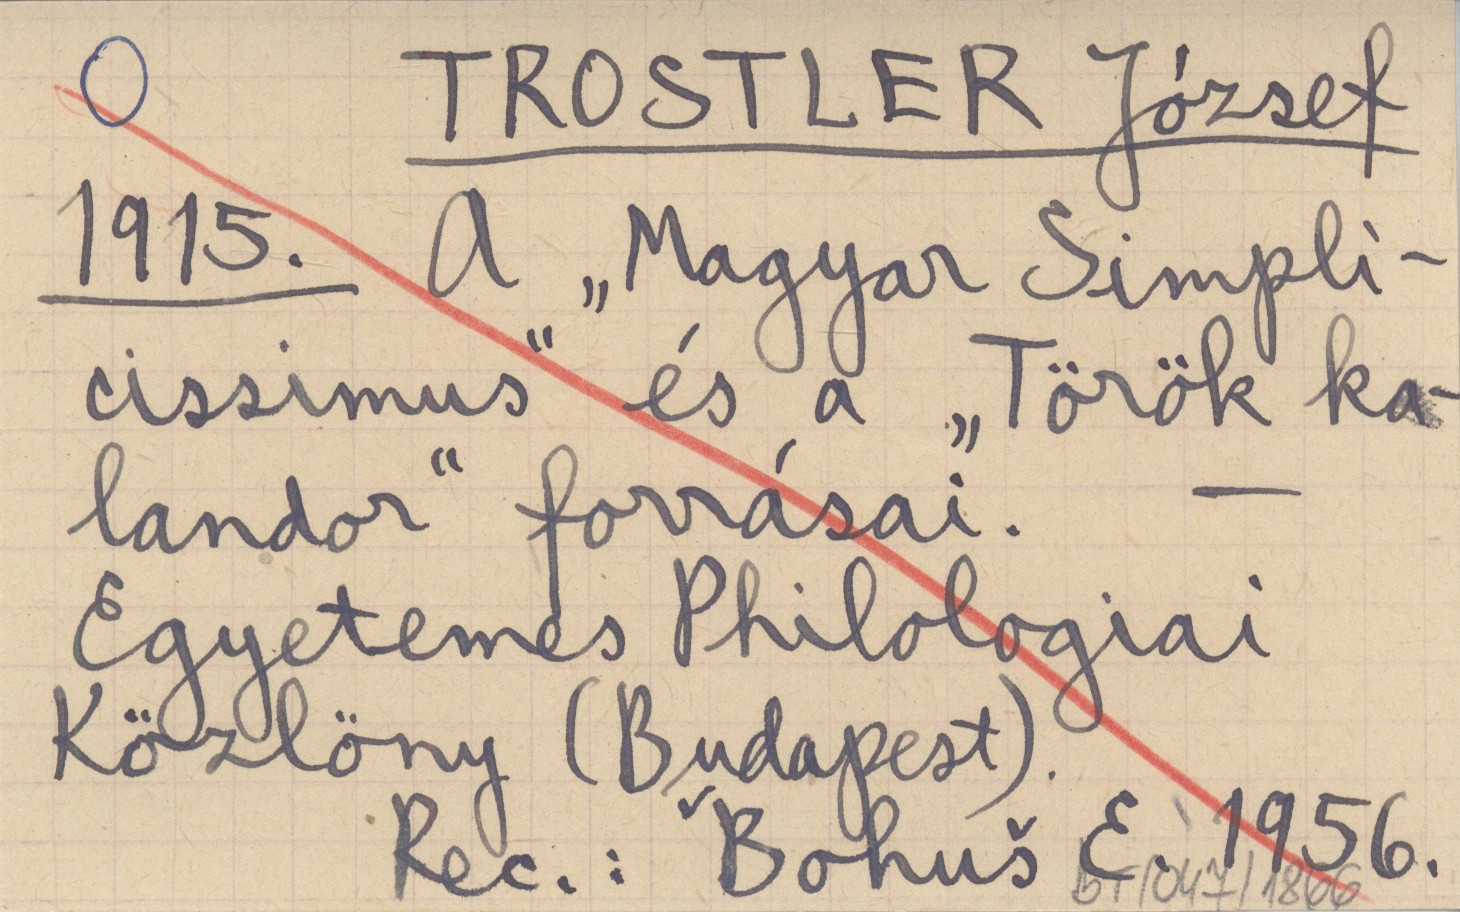 TROSTLER József
1915. A „Magyar Simpli-
cissimus“ és a „Török ka-
landor“ forrásai. —
Egyetemes Philologiai
Közlöny (Budapest).
Rec.: Bohuš E. 1956.
BT/047/1866